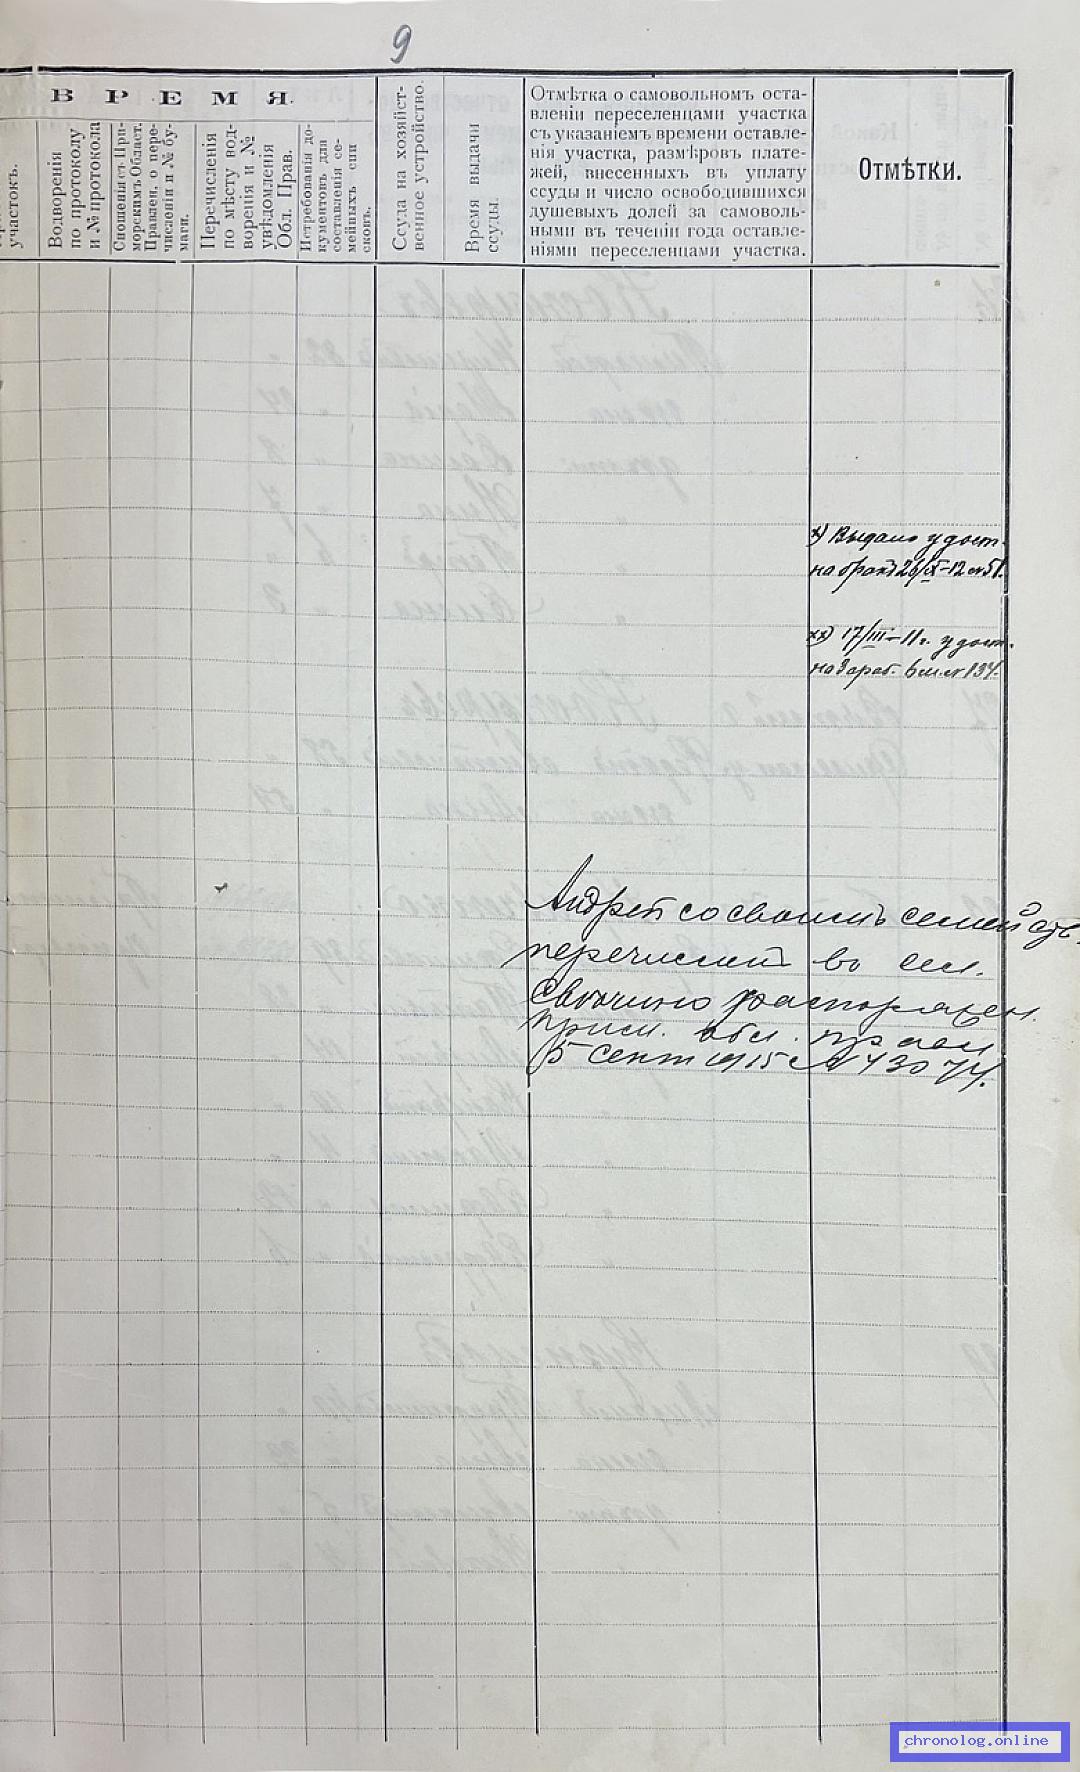 9
ВРЕМЯ.
участокъ.
Водворенія
по протоколу
и № протокола
Сношенія съ При-
морскимъ Област.
Правлен. о пере-
численіи и № бу-
маги.
Перечисленія
по мѣсту вод-
воренія и №
увѣдомленія
Обл. Прав.
Истребованія до-
кументовъ для
составленія се-
мейныхъ спи
сковъ.
Ссуда на хозяйст-
венное устройство.
Время выдачи
ссуды.
Отмѣтка о самовольномъ оста-
вленіи переселенцами участка
съ указаніемъ времени оставле-
нія участка, размѣровъ плате-
жей, внесенныхъ въ уплату
ссуды и число освободившихся
душевыхъ долей за самоволь-
ными въ теченіи года оставле-
ніями переселенцами участка.
Отмѣтки.
х) Выдано удост.
на бракъ 26/X-12 №51.
хх) 17/III-11г. удост.
на зараб. 6 м. № 134.
Андрей со своимъ семейств.
перечислен во сел.
распоряжен.
прим. обл. правл
5 Сент 1915 № 43074.
chronolog.online